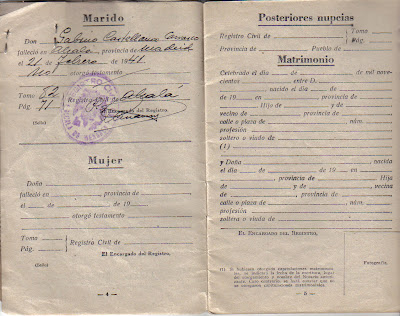 Marido
Don Gabino Castellanos Carrasco
falleció en Alcalá, provincia de Madrid
el 21 de febrero de 1941
No otorgó testamento
Tomo 52
Pág. 71
Registro Civil de Alcalá
El Encargado del Registro,
(Sello)
Mujer
Doña
falleció en provincia de
el de de 19
otorgó testamento
Tomo
Pág.
Registro Civil de
El Encargado del Registro,
(Sello)
— 4 —
Posteriores nupcias
Registro Civil de Tomo
Pág.
Provincia de Pueblo de
Matrimonio
Celebrado el día de de mil novecientos
entre D.
nacido el día de de
de 19 en , provincia de
Hijo de y de
vecino de , provincia de
calle o plaza de núm. de
profesión
soltero o viudo de
(1)
y Doña nacida
el día de de 19 en
, provincia de Hija
de y de vecina
de , provincia de
calle o plaza de núm. de
profesión
soltera o viuda de
EL ENCARGADO DEL REGISTRO,
Fotografía.
— 5 —